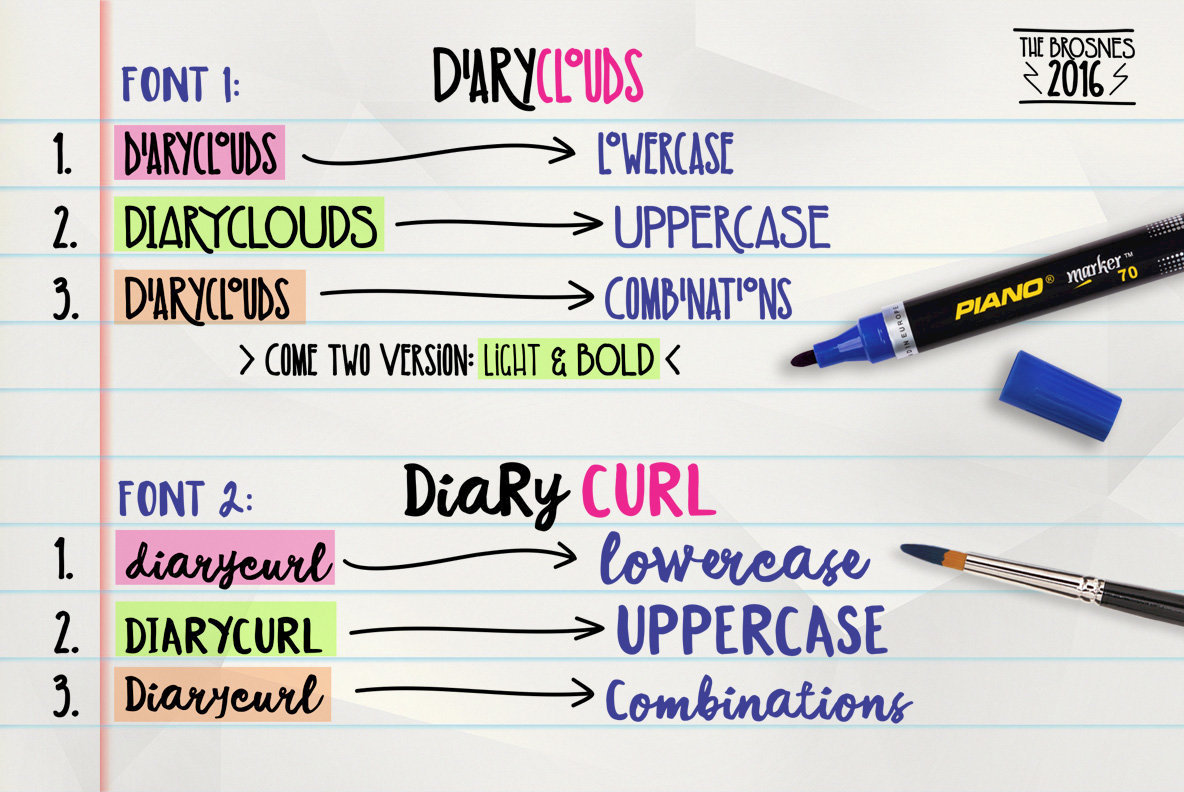 THE BROSNES
2016
FONT 1: DIARYCLOUDS
1. DIARYCLOUDS LOWERCASE
2. DIARYCLOUDS UPPERCASE
3. DIARYCLOUDS COMBINATIONS
> COME TWO VERSION: LIGHT & BOLD <
PIANO® marker™ 70
IN EUROPE
FONT 2: DiaRy CURL
1. diarycurl lowercase
2. DIARYCURL UPPERCASE
3. Diarycurl Combinations